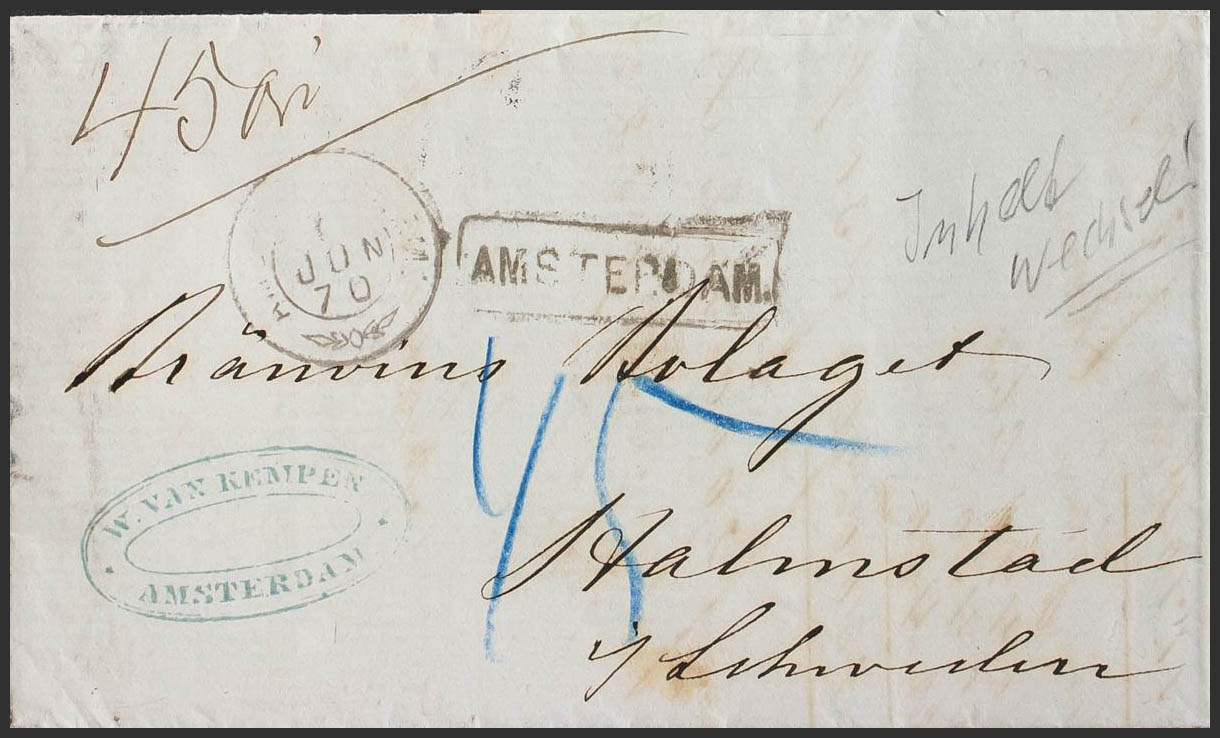 45 öri
JUN
70
AMSTERDAM.
Inhalt
Wechsel
Bränvins Bolaget
45
W. VAN KEMPEN
AMSTERDAM
Halmstad
i/ Schweden